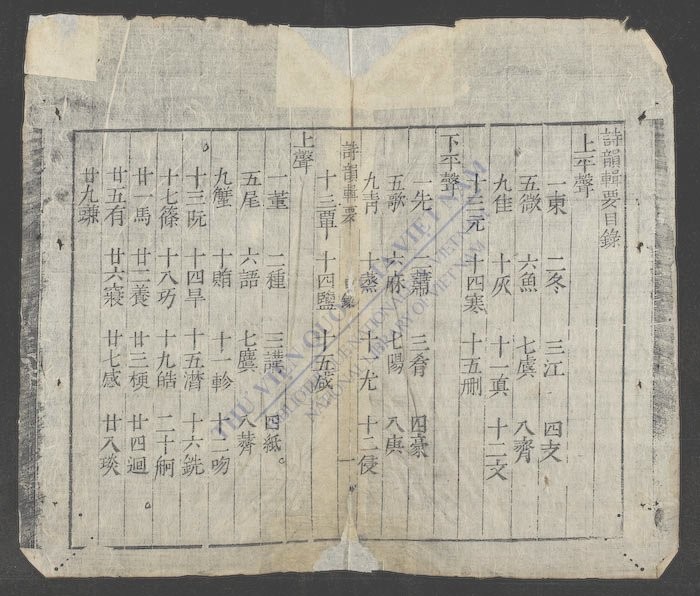 詩韻輯要目錄
上平聲
一東 二冬 三江 四支
五微 六魚 七虞 八齊
九佳 十灰 十一真 十二文
十三元 十四寒 十五刪
下平聲
一先 二蕭 三肴 四豪
五歌 六麻 七陽 八庚
九青 十蒸 十一尤 十二侵
詩韻輯要 目錄 一
十三覃 十四鹽 十五咸
上聲
一董 二種 三講 四紙
五尾 六語 七麌 八薺
九蟹 十賄 十一軫 十二吻
十三阮 十四旱 十五潸 十六銑
十七篠 十八巧 十九皓 二十舸
廿一馬 廿二養 廿三梗 廿四迥
廿五有 廿六寢 廿七感 廿八琰
廿九豏
THƯ VIỆN QUỐC GIA VIỆT NAM
BIBLIOTHÈQUE NATIONALE DU VIETNAM
NATIONAL LIBRARY OF VIETNAM